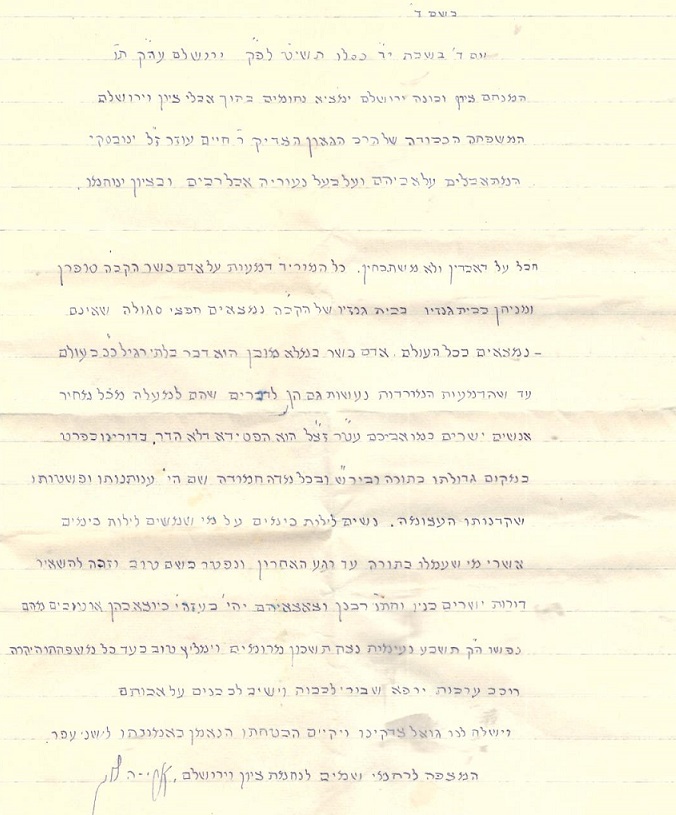 בשם ד'
יום ד' בשבת י"ד כסלו תשי"ט לפ"ק ירושלם עה"ק ת"ו
המנחם ציון ובונה ירושלם ימציא נחומים בתוך אבלי ציון וירושלם
המשפחה הכבודה של הרב הגאון הצדיק ר' חיים עוזר ז"ל ינובסקי
המתאבלים על אביהם ועל בעל נעוריה אבל רבים ובציון ינוחמו.
חבל על דאבדין ולא משתכחין. כל המוריד דמעות על אדם כשר הקב"ה סופרן
ומניחן בבית גנזיו בבית גנזיו של הקב"ה נמצאים חפצי סגולה שאינם
- נמצאים בכל העולם. אדם כשר במלא מובן הוא דבר בלתי רגיל כ"כ בעולם
עד שהדמעות המורדות נעשות גם הן לדברים שהם למעלה מכל מחיר
אנשים ישרים כמו אביכם עט"ר זצ"ל הוא הפסידא דלא הדר. בדורינו בפרט
במקום גדולתו בתורה וביר"ש ובכל מדה חמודה שם הי' ענותנותו ופשטותו
שקדנותו העצומה. נשים לילות כימים על מי שמשים לילות כימים
אשרי מי שעמלו בתורה עד רגע האחרון ונפטר בשם טוב וזכה להשאיר
דורות ישרים בנין וחתני רבנן וצאצאיהם יהי' בעזה"י כיוצא בהן או טובים מהם
נפשו הק' תשבע נעימות נצח תשכון מרומים וימליץ טוב בעד כל משפחתו היקרה
רוכב ערבות ירפא שבורי לבות וישיב לב בנים על אבותם
וישלח לנו גואל צדקינו ויקיים הבטחתו הנאמן באמונתו לישני עפר.
המצפה לרחמי שמים לנחמת ציון וירושלם,